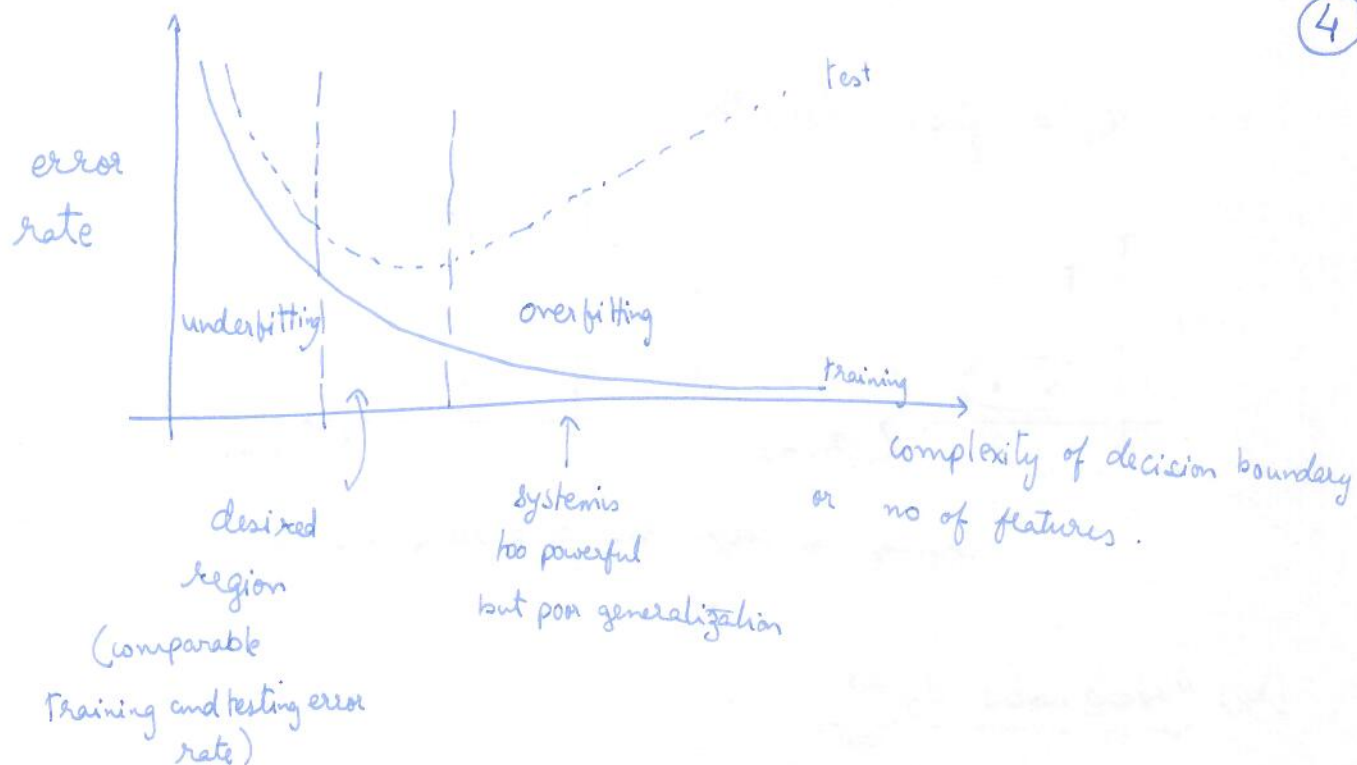 4
test
error
rate
underfitting
overfitting
training
complexity of decision boundary
or no of features.
desired
region
(comparable
training and testing error
rate)
system is
too powerful
but poor generalization